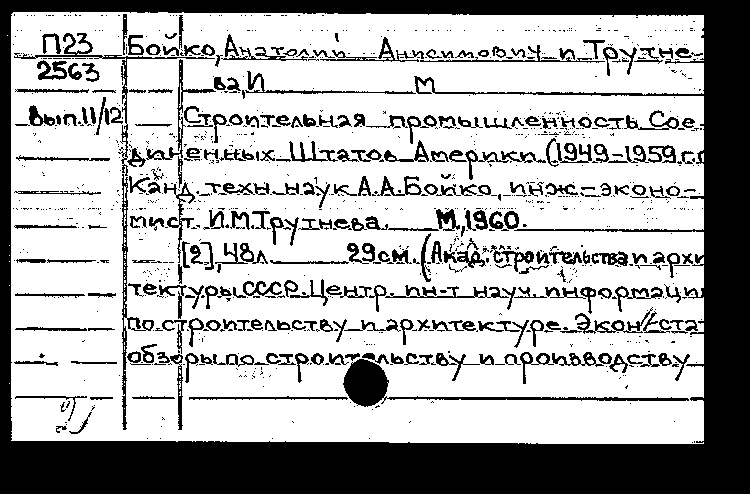 П23 Бойко, Анатолий Анисимович и Трутне-
2563 ва, И М
Вып.11/12 Строительная промышленность Сое-
диненных Штатов Америки (1949-1959 г.г
Канд. техн. наук А.А.Бойко, инж.-эконо-
мист И.М.Трутнева. М.,1960.
[2], 48л 29см. (Акад. строительства и архи
тектуры СССР. Центр. ин-т науч. информации
по строительству и архитектуре. Экон.-ста
обзоры по строительству и производству